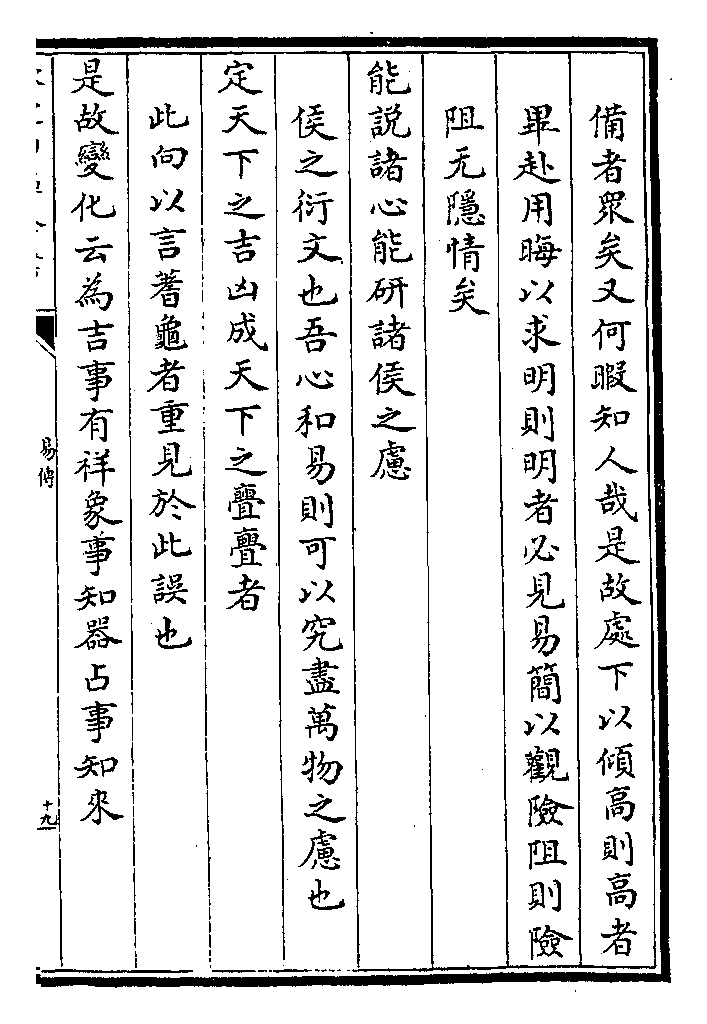 備者眾矣又何暇知人哉是故處下以傾高則高者
畢赴用晦以求明則明者必見易簡以觀險阻則險
阻无隱情矣
能説諸心能研諸侯之慮
侯之衍文也吾心和易則可以究盡萬物之慮也
定天下之吉凶成天下之亹亹者
此向以言蓍龜者重見於此誤也
是故變化云為吉事有祥象事知器占事知來
易傳
十九